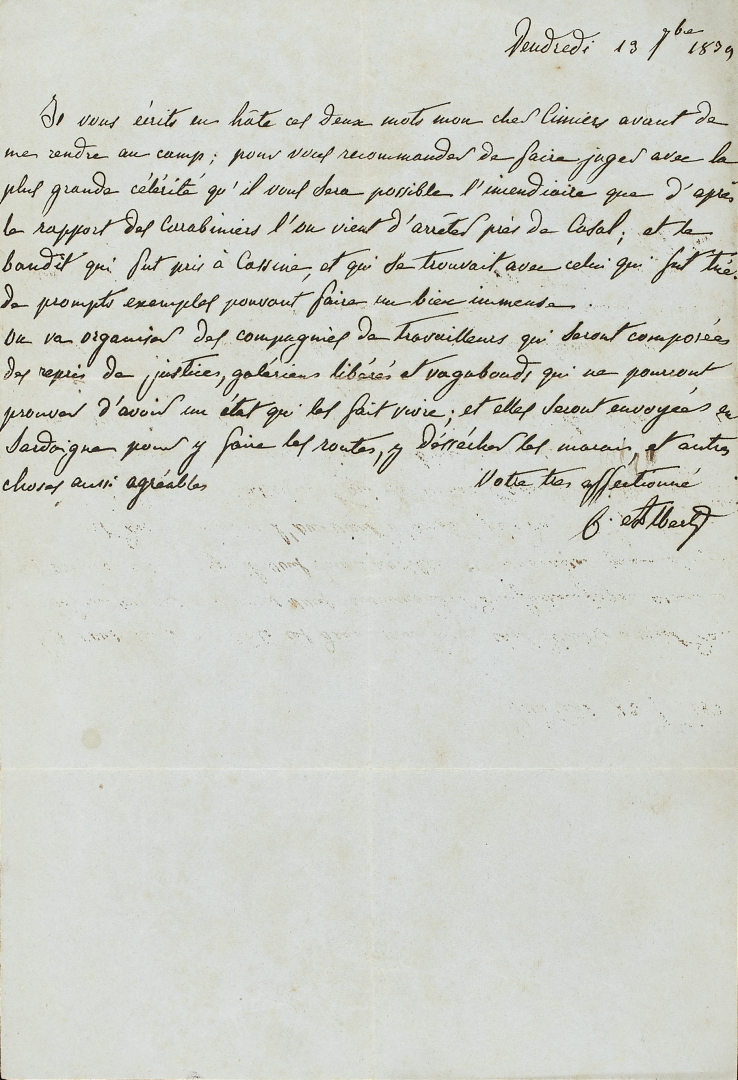 Vendredi 13 7bre 1839
Je vous écrits en hâte ces deux mots mon cher Cimiers avant de
me rendre au camp; pour vous recommander de faire juger avec la
plus grande célérité qu'il vous sera possible l'incendiaire que d'après
le rapport des Carabiniers l'on vient d'arrêter près de Casal; et le
bandit qui fut pris à Cassine, et qui se trouvait avec celui qui fut tué.
de prompts exemples pouvant faire un bien immense.
On va organiser des compagnies de travailleurs qui seront composées
des repris de justices, galériens libérés et vagabonds qui ne pourront
prouver d'avoir un état qui les fait vivre; et elles seront envoyées en
Sardaigne pour y faire les routes, y déssécher les marais, et autres
choses aussi agréables
Votre tres affectionné
C. Albert